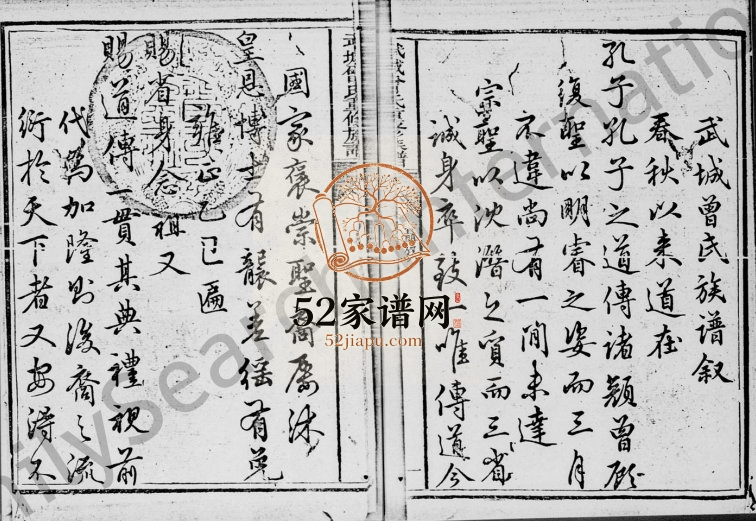 武城曾氏族譜叙
春秋以来道在
孔子孔子之道傳諸顔曾顧
復聖以明睿之姿而三月
不違尚有一間未達
宗聖以沈潛之質而三省
誠身卒致一唯傳道今
武城曾氏重修族譜
武城曾氏重修族譜
國家褒崇聖裔屢沐
皇恩博士有襲差徭有免
雍正乙巳
賜省身念祖又
賜道傳一貫其典禮視前
代為加隆則後裔之流
衍於天下者又安得不
52家谱网
52jiapu.com
milySearch Internation